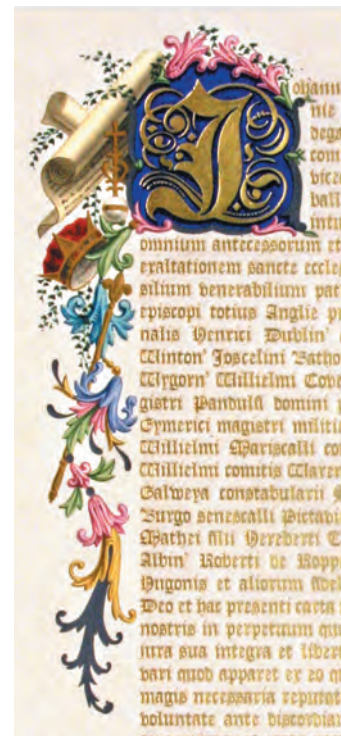 Johann
nie
dega
com
vicec
ball
intu
omnium antecessorum et
exaltationem sancte eccle
silium venerabilium pat
episcopi totius Anglie p
nalis Henrici Dublin'
Winton' Joscelini Batho
Wygorn' Willielmi Cove
gistri Pandulfi domini
Eymerici magistri militi
Willielmi Mariscalli co
Willielmi comitis Waren
Galweya constabularii
Burgo senescalli Pictavi
Mathei filii Hereberti
Albin' Roberti de Ropp
Hugonis et aliorum fidel
Deo et hac presenti carta
nostris in perpetuum qu
iura sua integra et liber
vari quod apparet ex eo q
magis necessaria reputat
voluntate ante discordia